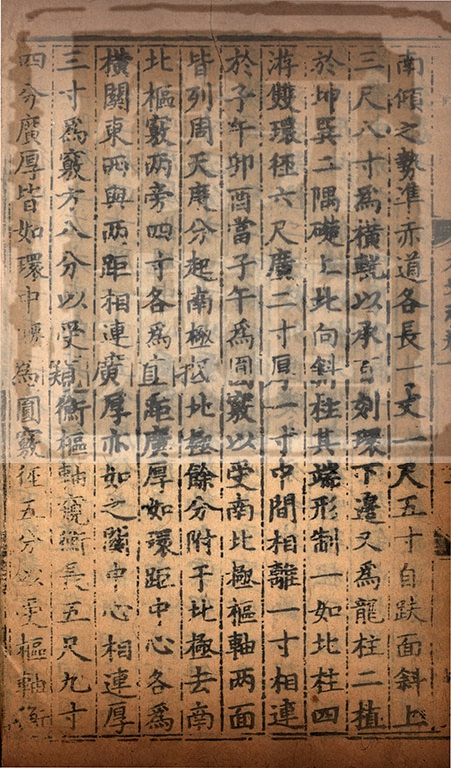 南傾之勢準赤道各長一丈一尺五寸自趺面斜上
三尺八寸爲橫軏以承百刻環下邊又爲龍柱二植
於坤巽二隅礎上北向斜柱其端形制一如北柱四
游雙環徑六尺廣二寸厚一寸中間相離一寸相連
於子午卯酉當子午爲圓竅以受南北極樞軸兩面
皆列周天度分起南極北極餘分附于北極去南
北樞竅兩旁四寸各爲直距廣厚如環距中心各爲
橫關東西與兩距相連廣厚亦如之關中心相連厚
三寸爲竅方八分以受衡樞軸窺衡長五尺九寸
四分廣厚皆如環中腰爲圓竅徑五分以受樞軸衡